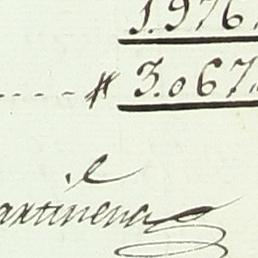 1.976
# 3.067
e
artinena